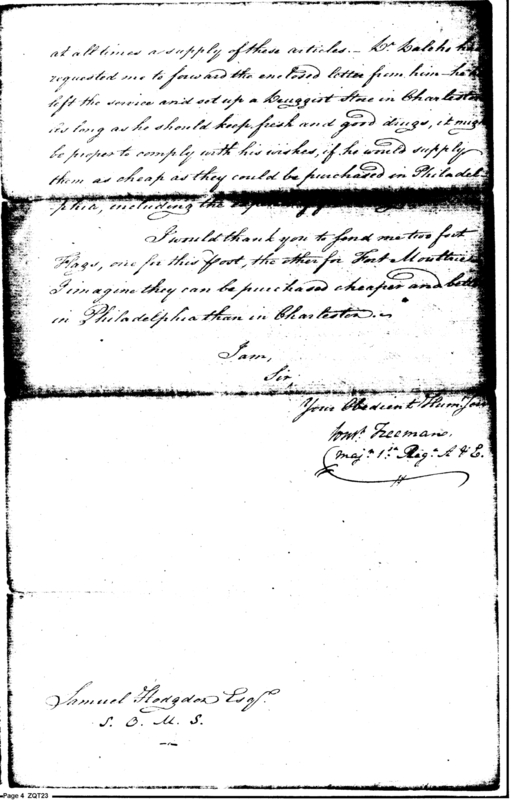 at all times a supply of these articles.— Dr. Kalehe has
requested me to forward the enclosed letter from him—he has
left the service and set up a Druggist Store in Charleston
as long as he should keep fresh and good drugs, it might
be proper to comply with his wishes, if he would supply
them as cheap as they could be purchased in Philadel-
phia, including the
I would thank you to send me two fort
Flags, one for this Foot, the other for Fort Moultrie
I imagine they can be purchased cheaper and better
in Philadelphia than in Charleston.
I am,
Sir,
Your Obedient Hum. Ser
Freeman.
Maj.r 1st Reg.t A & E.
Samuel Hodgdon Esqr.
S. O. M. S.
Page 4 ZQT23